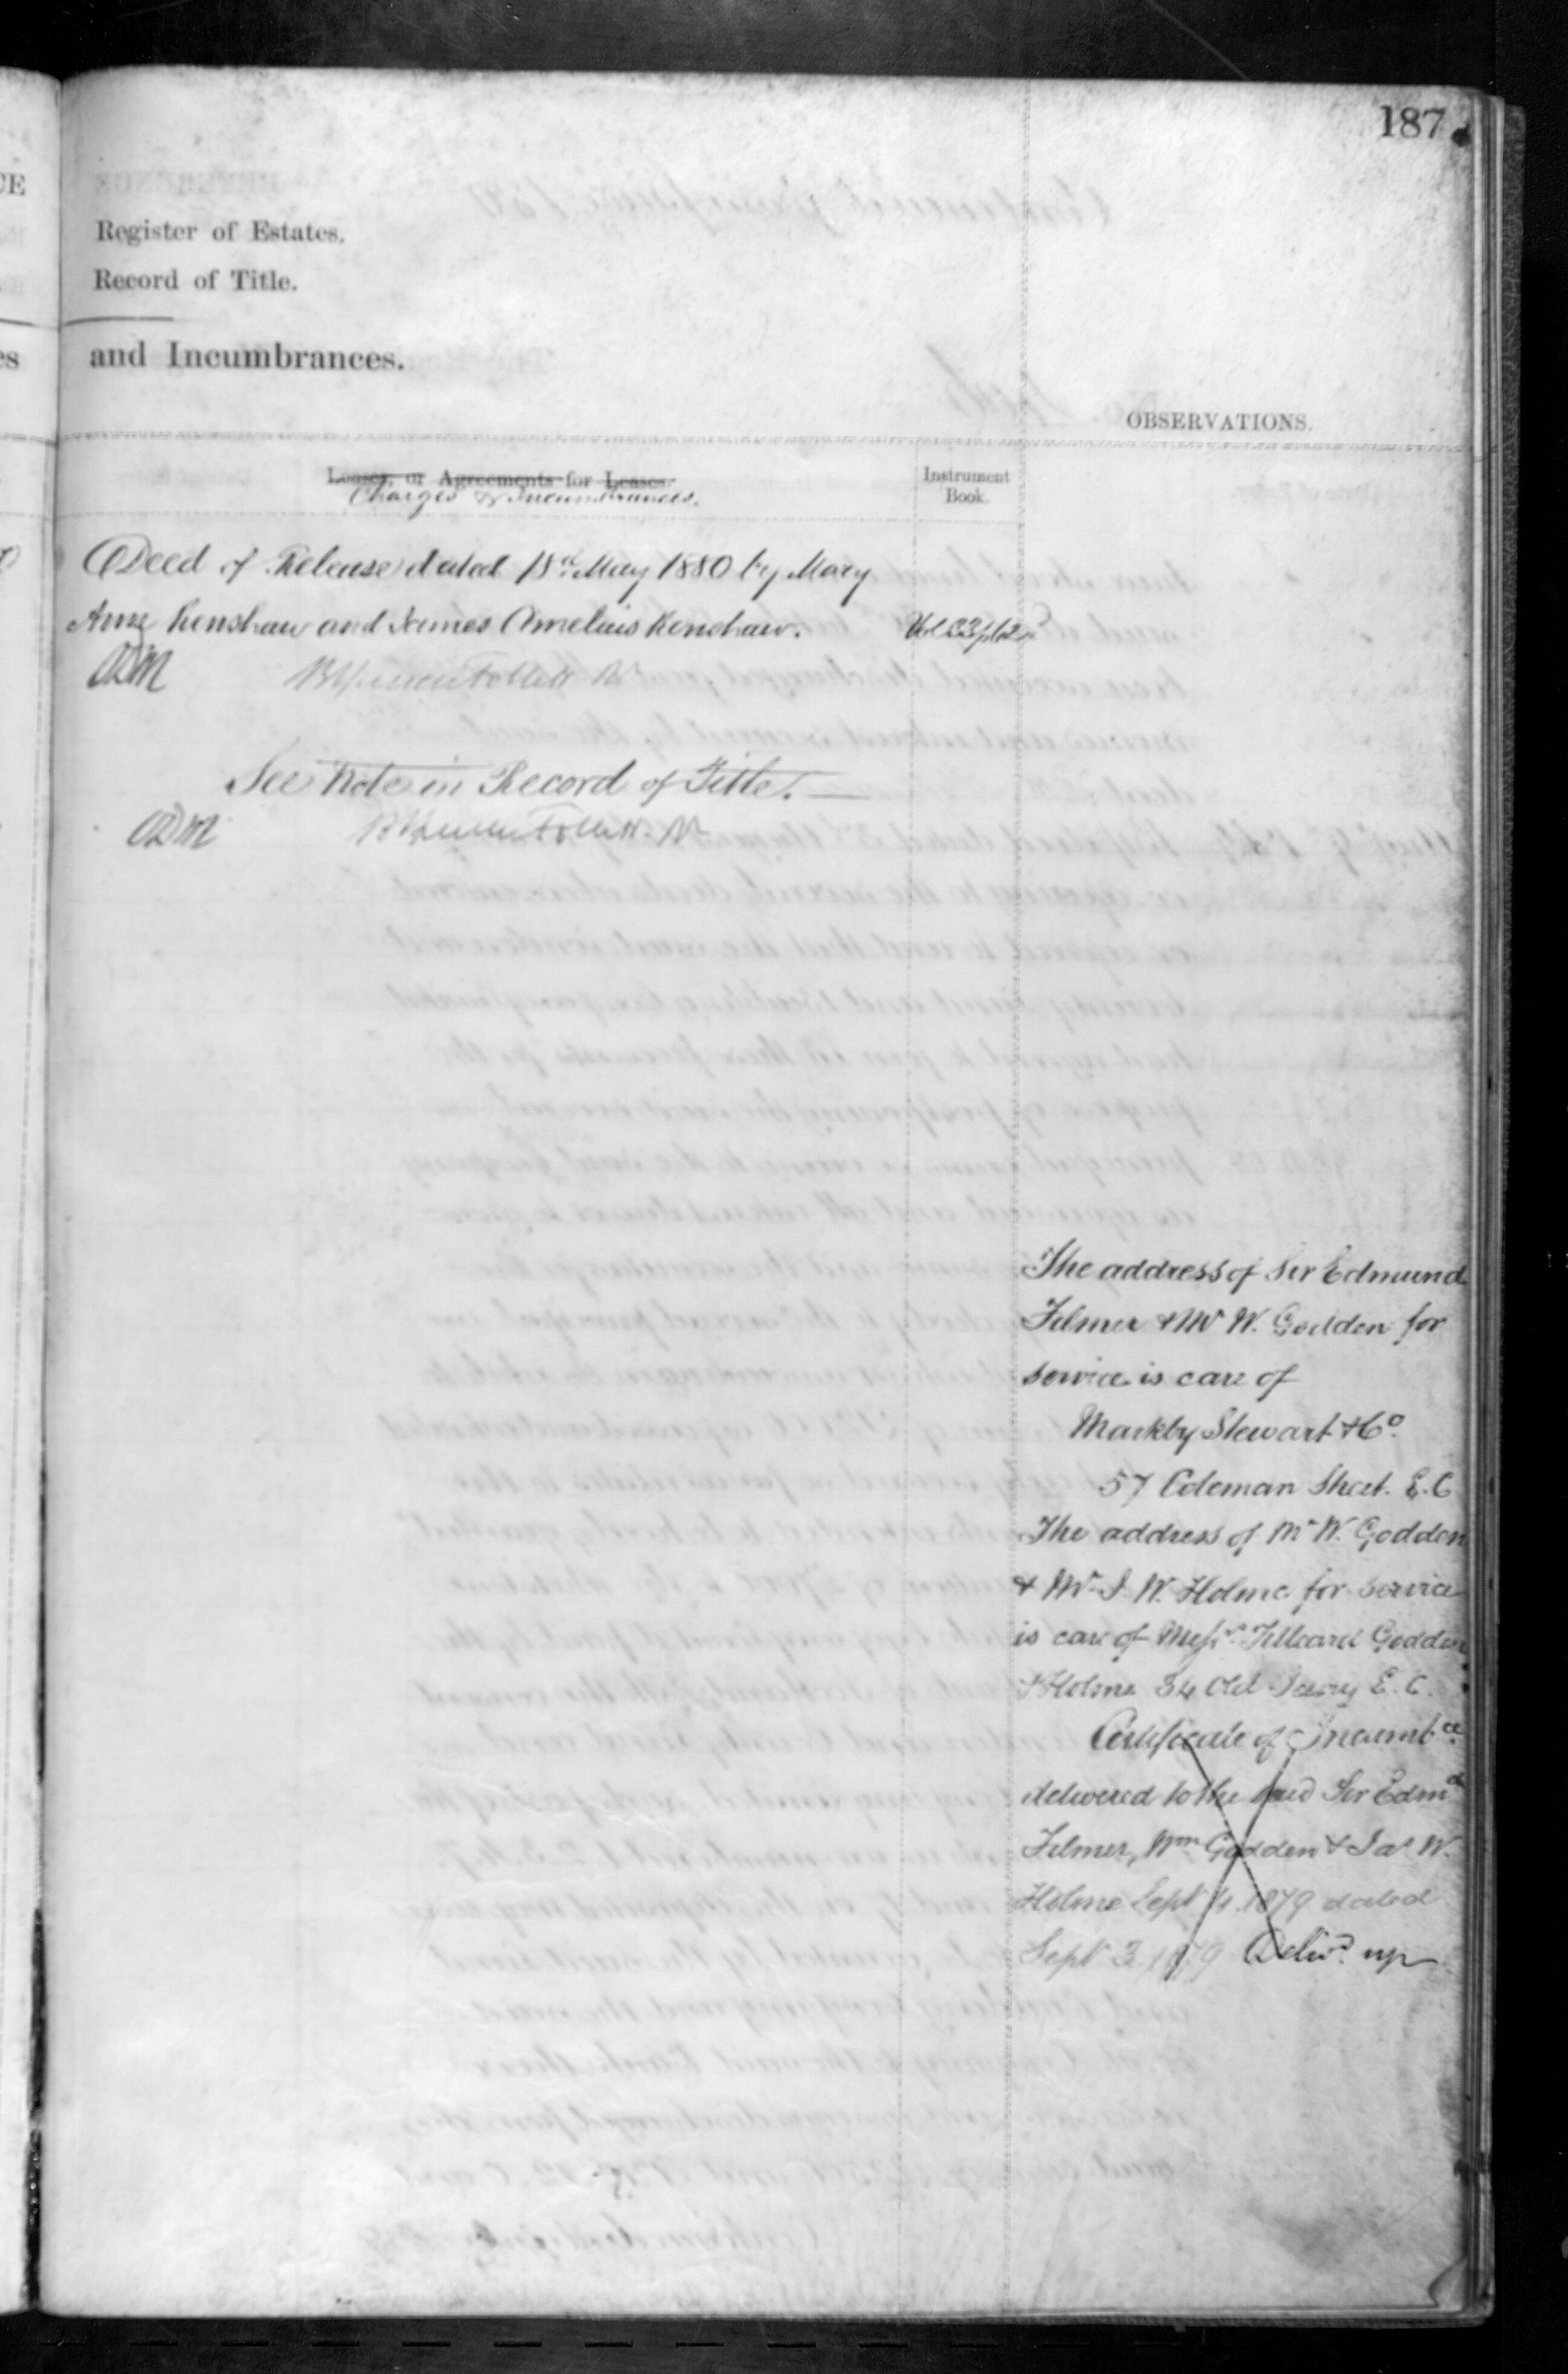 187
Register of Estates.
Record of Title.
and Incumbrances.
OBSERVATIONS.
Leases, or Agreements for Leases.
Charges & Incumbrances.
Instrument
Book.
Deed of Release dated 18th May 1880 by Mary
Anne Renshaw and James Amelius Renshaw.
Vol 23
ADM
See Note in Record of Title. —
ADM
The address of Sir Edmund
Filmer & Mr W. Godden for
service is care of
Markby Stewart & Co.
57 Coleman Street. E.C
The address of Mr W. Godden
& Mr J. W. Holme for service
is care of Messrs Tilleard Godden
& Holme 34 Old Jewry E.C.
Certificate of Incumbce
delivered to the said Sir Edmd
Filmer, Wm Godden & Jas W.
Holme Sept 4. 1879 dated
Sept 3. 1879 Delivd up